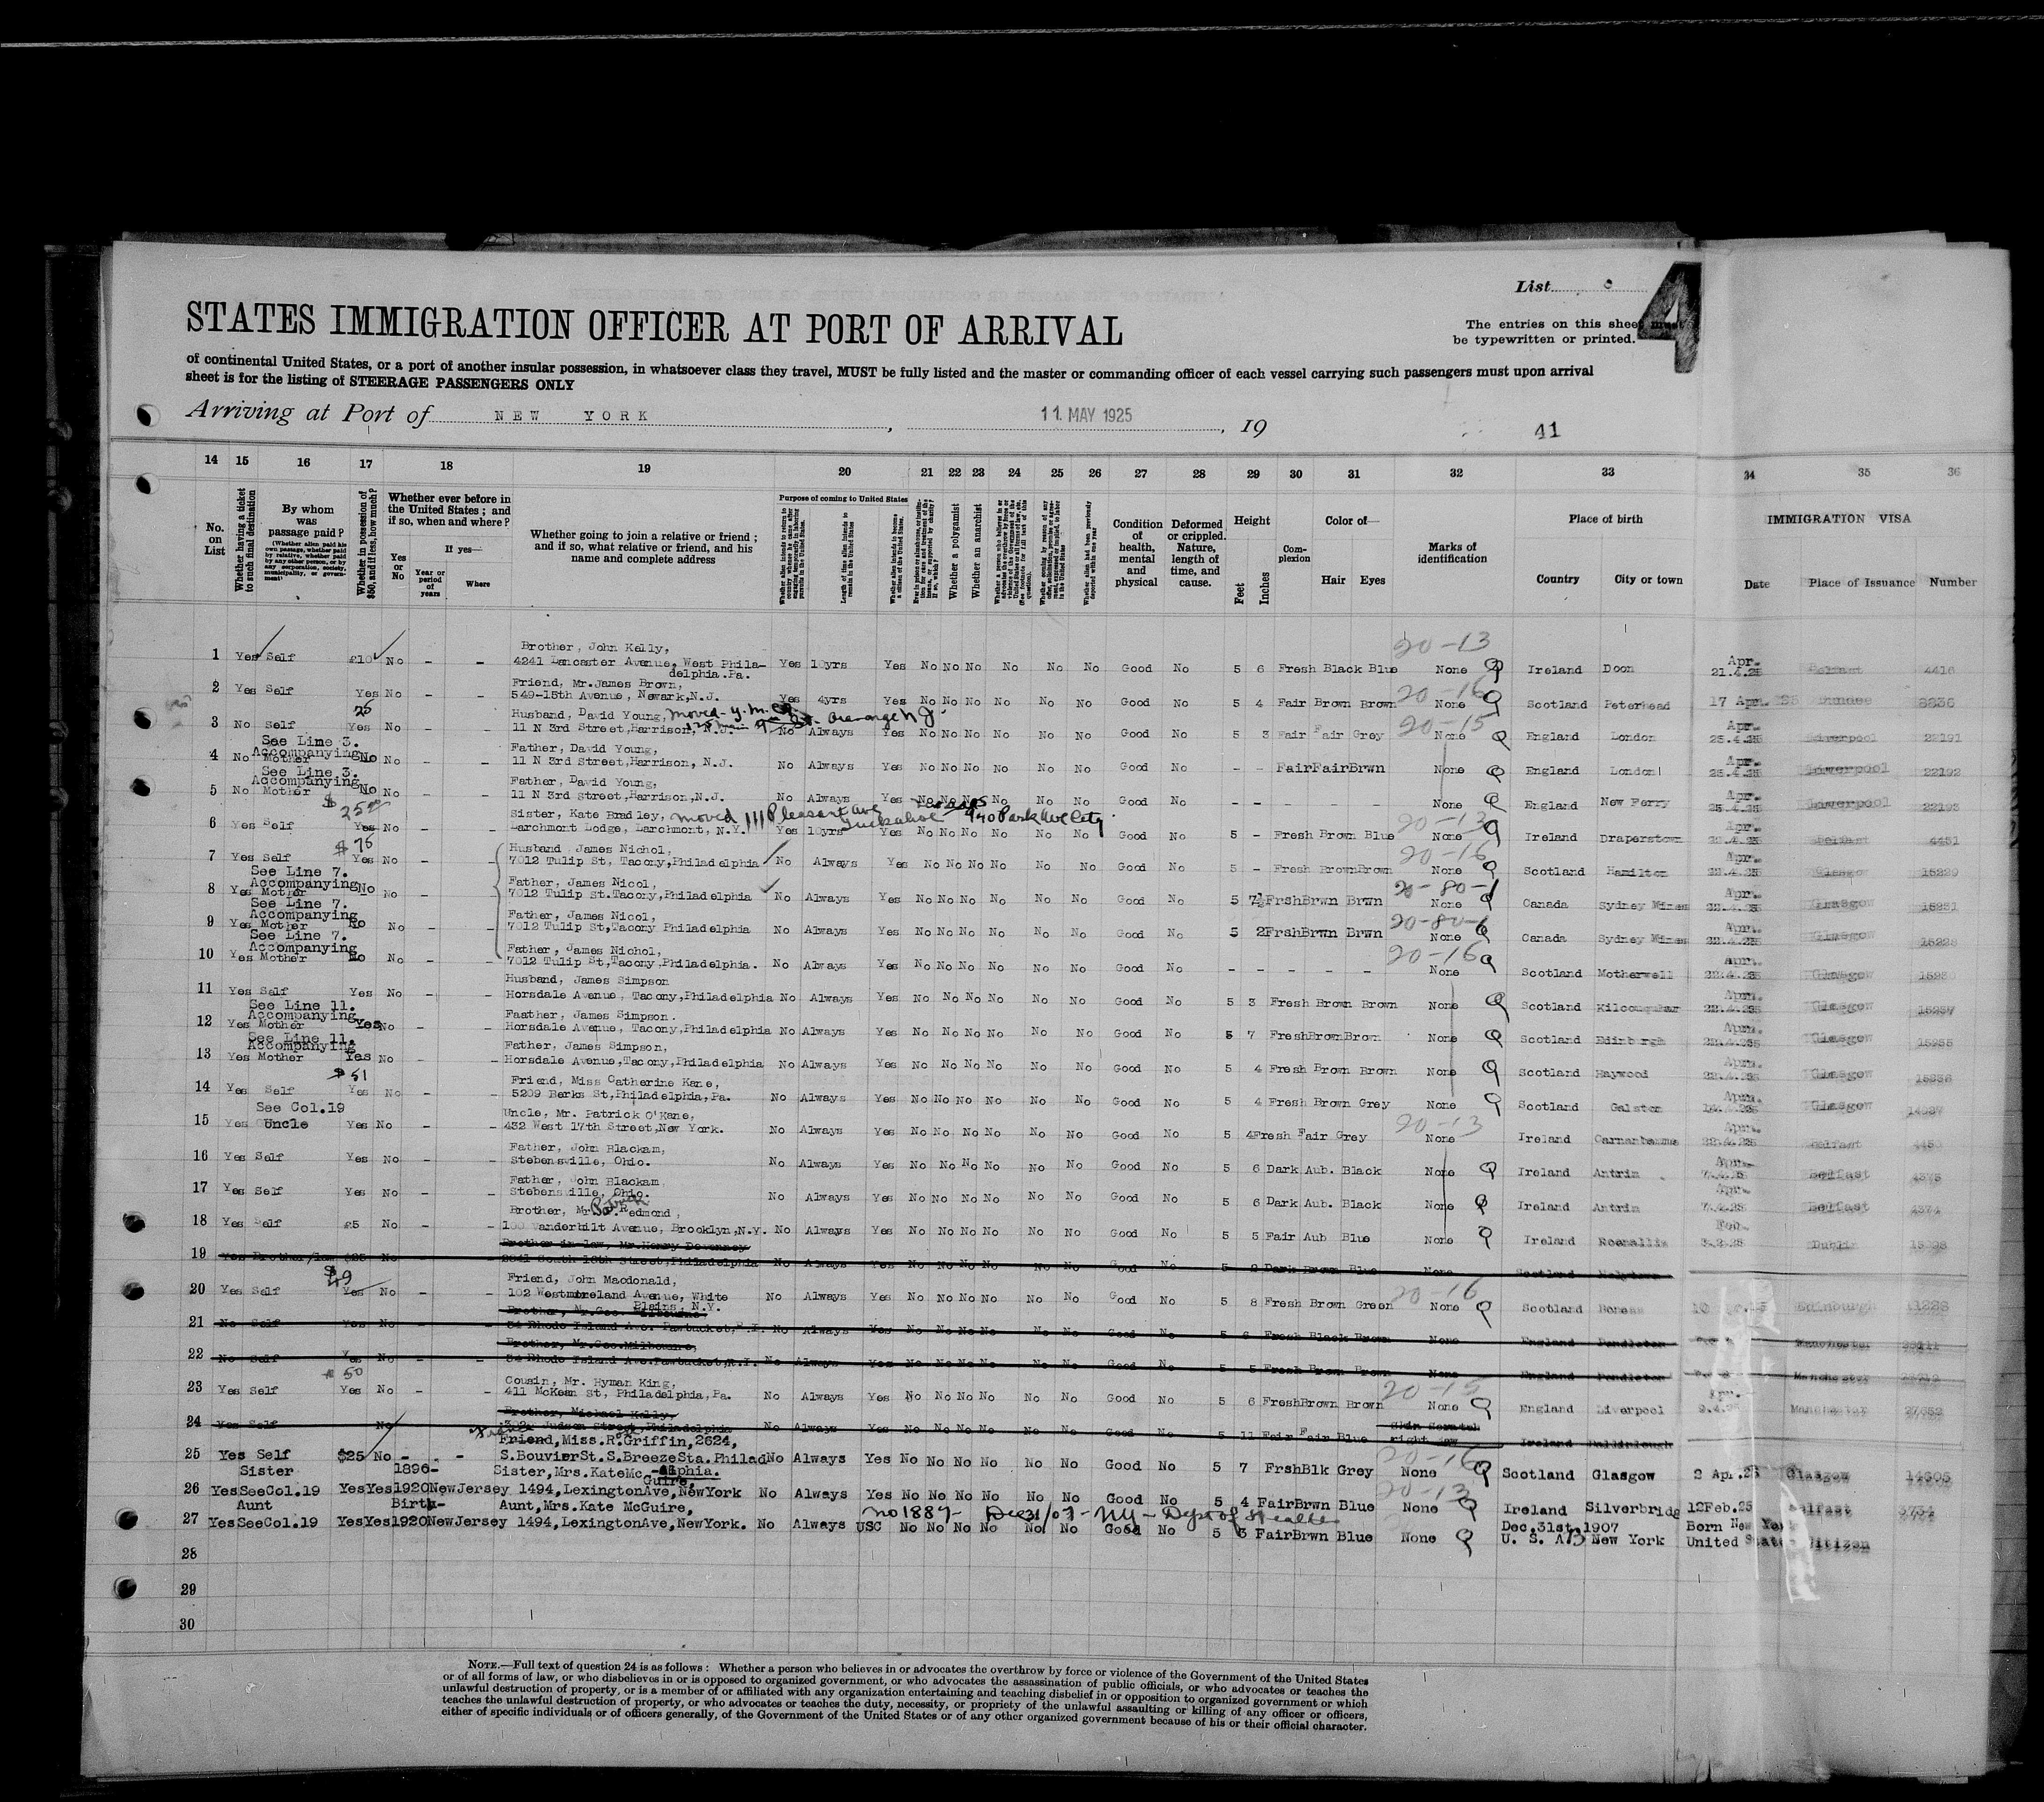 List
4
The entries on this sheet must
be typewritten or printed.
STATES IMMIGRATION OFFICER AT PORT OF ARRIVAL
of continental United States, or a port of another insular possession, in whatsoever class they travel, MUST be fully listed and the master or commanding officer of each vessel carrying such passengers must upon arrival
sheet is for the listing of STEERAGE PASSENGERS ONLY
Arriving at Port of NEW YORK, 11. MAY 1925, 19
41
14 15 16 17 18 19 20 21 22 23 24 25 26 27 28 29 30 31 32 33 34 35 36
No. on List
Whether having a ticket to such final destination
By whom was passage paid?
(Whether alien paid his own passage, whether paid by relative, whether paid by any other person, or by any corporation, society, municipality, or government)
Whether in possession of $50, and if less, how much?
Whether ever before in the United States; and if so, when and where?
Yes or No
If yes—
Year or period of years
Where
Whether going to join a relative or friend; and if so, what relative or friend, and his name and complete address
Purpose of coming to United States
Length of time alien intends to remain in the United States
Whether alien intends to become a citizen of the United States
Whether a polygamist
Whether an anarchist
Whether alien had been previously deported within one year
Condition of health, mental and physical
Deformed or crippled. Nature, length of time, and cause.
Height
Feet
Inches
Complexion
Color of—
Hair Eyes
Marks of identification
Place of birth
Country City or town
IMMIGRATION VISA
Date Place of Issuance Number
Brother, John Kelly, 20-13
1 Yes Self £10 No - - 4241 Lancaster Avenue, West Phila- Yes 10yrs Yes No No No No No No Good No 5 6 Fresh Black Blue None Ireland Doon Apr. 21.4.25 Belfast 4416
delphia.Pa.
Friend, Mr.James Brown, 20-16
2 Yes Self Yes No - - 549-15th Avenue, Newark,N.J. Yes 4yrs Yes No No No No No No Good No 5 4 Fair Brown Brown None Scotland Peterhead 17 Apr. 25 Dundee
25 Husband, David Young, moved - Y.M.C.A. Orange NJ 20-15
3 No Self Yes No - - 11 N 3rd Street,Harrison, N.J. No Always Yes No No No No No No Good No 5 3 Fair Fair Grey None England London Apr. 25.4.25 Liverpool 22191
See Line 3. Father, David Young,
4 No Accompanying Mother No No - - 11 N 3rd Street,Harrison, N.J. No Always Yes No No No No No No Good No - - Fair Fair Brwn None England London Apr. 25.4.25 Liverpool 22192
See Line 3. Father, David Young,
5 No Accompanying Mother No No - - 11 N 3rd Street,Harrison,N.J. No Always Yes No No No No No No Good No - - - - - None England New Ferry Apr. 25.4.25 Liverpool 22193
$25 Sister, Kate Bradley, moved 111 Pleasant Ave Tuckahoe 940 Park Ave City 20-13
6 Yes Self Yes No - - Larchmont Lodge, Larchmont, N.Y. Yes 10yrs Yes No No No No No No Good No 5 - Fresh Brown Blue None Ireland Draperstown Apr. 22.4.25 Belfast 4451
$75 Husband James Nichol, 20-16
7 Yes Self Yes No - - 7012 Tulip St, Tacony,Philadelphia No Always Yes No No No No No No Good No 5 - Fresh Brown Brown None Scotland Hamilton Apr. 22.4.25 Glasgow 15229
See Line 7. Father, James Nicol, 20-80-1
8 Yes Accompanying Mother No No - - 7012 Tulip St.Tacony,Philadelphia No Always Yes No No No No No No Good No 5 7½ Frsh Brwn Brwn None Canada Sydney Mines Apr. 22.4.25 Glasgow 15231
See Line 7. Father, James Nicol, 20-80-
9 Yes Accompanying Mother No No - - 7012 Tulip St,Tacony Philadelphia No Always Yes No No No No No No Good No 5 2 Frsh Brwn Brwn None Canada Sydney Mines Apr. 22.4.25 Glasgow
See Line 7. Father, James Nichol, 20-16
10 Yes Accompanying Mother No No - - 7012 Tulip St,Tacony,Philadelphia. No Always Yes No No No No No No Good No - - - - - None Scotland Motherwell Apr. 22.4.25 Glasgow
Husband, James Simpson
11 Yes Self Yes No - - Horsdale Avenue, Tacony,Philadelphia No Always Yes No No No No No No Good No 5 3 Fresh Brown Brown None Scotland Kilconquhar Apr. 22.4.25 Glasgow 15237
See Line 11. Faather, James Simpson.
12 Yes Accompanying Mother Yes No - - Horsdale Avenue, Tacony,Philadelphia No Always Yes No No No No No No Good No 5 7 Fresh Brown Brown None Scotland Edinburgh Apr. 22.4.25 Glasgow
See Line 11. Father, James Simpson,
13 Yes Accompanying Mother Yes No - - Horsdale Avenue,Tacony,Philadelphia No Always Yes No No No No No No Good No 5 4 Fresh Brown Brown None Scotland Haywood Apr. 22.4.25 Glasgow
$51 Friend, Miss Catherine Kane,
14 Yes Self Yes No - - 5209 Berks St,Philadelphia,Pa. No Always Yes No No No No No No Good No 5 4 Fresh Brown Grey None Scotland Galston Apr. Glasgow
See Col.19 Uncle, Mr. Patrick O'Kane, 20-13
15 Yes Uncle Yes No - - 432 West 17th Street,New York. No Always Yes No No No No No No Good No 5 4 Fresh Fair Grey None Ireland Apr. 22.4.25 Belfast
Father, John Blackam,
16 Yes Self Yes No - - Stebensville, Ohio. No Always Yes No No No No No No Good No 5 6 Dark Aub. Black None Ireland Antrim Apr. 7.4.25 Belfast 4375
Father, John Blackam,
17 Yes Self Yes No - - Stebensville, Ohio. No Always Yes No No No No No No Good No 5 6 Dark Aub. Black None Ireland Antrim Apr. 7.4.25 Belfast 4374
Brother, Mr. Patrick Redmond,
18 Yes Self £5 No - - 100 Vanderbilt Avenue, Brooklyn,N.Y. No Always Yes No No No No No No Good No 5 5 Fair Aub Blue None Ireland Rosenallis Feb. 3.2.25 Dublin
Brother-in-law, Mr.Henry Devenney
19 Yes Brother/law $25 No 2341 South 18th Street,Philadelphia No Always Yes No No No No No No Good No 5 9 Dark Brown Blue None Scotland
$49 Friend, John Macdonald, 20-16
20 Yes Self Yes No - - 102 Westmoreland Avenue, White No Always Yes No No No No No No Good No 5 8 Fresh Brown Green None Scotland Boness Edinburgh 11228
Plains, N.Y.
Brother, Mr.Geo. Milbourne
21 No Self Yes No 54 Rhode Island Ave. Pawtucket,R.I. No Always Yes No No No No No No Good No 5 6 Fresh Black Brown None England Pendleton Manchester
Brother, Mr.Geo.Milbourne,
22 No Self Yes No - - 54 Rhode Island Ave.Pawtucket,R.I. No Always Yes No No No No No No Good No 5 5 Fresh Brown Brown None England Pendleton Manchester
$50 Cousin, Mr. Hyman King, 20-15
23 Yes Self Yes No - - 411 McKean St, Philadelphia,Pa. No Always Yes No No No No No No Good No 5 6 Fresh Brown Brown None England Liverpool Apr. Manchester 27652
Brother, Michael Kelly,
24 Yes Self No Judson Street,Philadelphia No Always Yes No No No No No No Good No 5 11 Fair Fair Blue Skin Scratch right jaw Ireland Ballinlough
Friend,Miss.R.Griffin,2624, 20-16
25 Yes Self $25 No - - S.BouvierSt.S.BreezeSta.Philad No Always Yes No No No No No No Good No 5 7 Frsh Blk Grey None Scotland Glasgow 2 Apr.25 Glasgow 14605
-elphia.
Sister 1896- Sister,Mrs.KateMc Guire, 20-13
26 Yes SeeCol.19 Yes Yes 1920 NewJersey 1494,LexingtonAve,NewYork No Always Yes No No No No No No Good No 5 4 Fair Brwn Blue None Ireland Silverbridg 12Feb.25 Belfast 3734
Aunt Birth- Aunt,Mrs.Kate McGuire, no 1887- Dec 31/07 - NY - Dept of Health Dec.31st.1907 Born New York
27 Yes SeeCol.19 Yes Yes 1920 NewJersey 1494,LexingtonAve,NewYork. No Always USC No No No No No No Good No 5 3 Fair Brwn Blue None U. S. A New York United States Citizen
28
29
30
NOTE.—Full text of question 24 is as follows: Whether a person who believes in or advocates the overthrow by force or violence of the Government of the United States
or of all forms of law, or who disbelieves in or is opposed to organized government, or who advocates the assassination of public officials, or who advocates or teaches the
unlawful destruction of property, or is a member of or affiliated with any organization entertaining and teaching disbelief in or opposition to organized government or which
teaches the unlawful destruction of property, or who advocates or teaches the duty, necessity, or propriety of the unlawful assaulting or killing of any officer or officers,
either of specific individuals or of officers generally, of the Government of the United States or of any other organized government because of his or their official character.